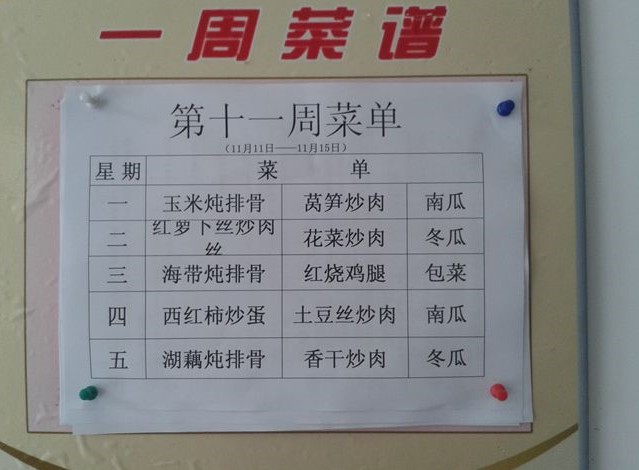 一周菜谱
第十一周菜单
（11月11日——11月15日）
星期 菜 单
一 玉米炖排骨 莴笋炒肉 南瓜
二 红萝卜丝炒肉丝 花菜炒肉 冬瓜
三 海带炖排骨 红烧鸡腿 包菜
四 西红柿炒蛋 土豆丝炒肉 南瓜
五 湖藕炖排骨 香干炒肉 冬瓜